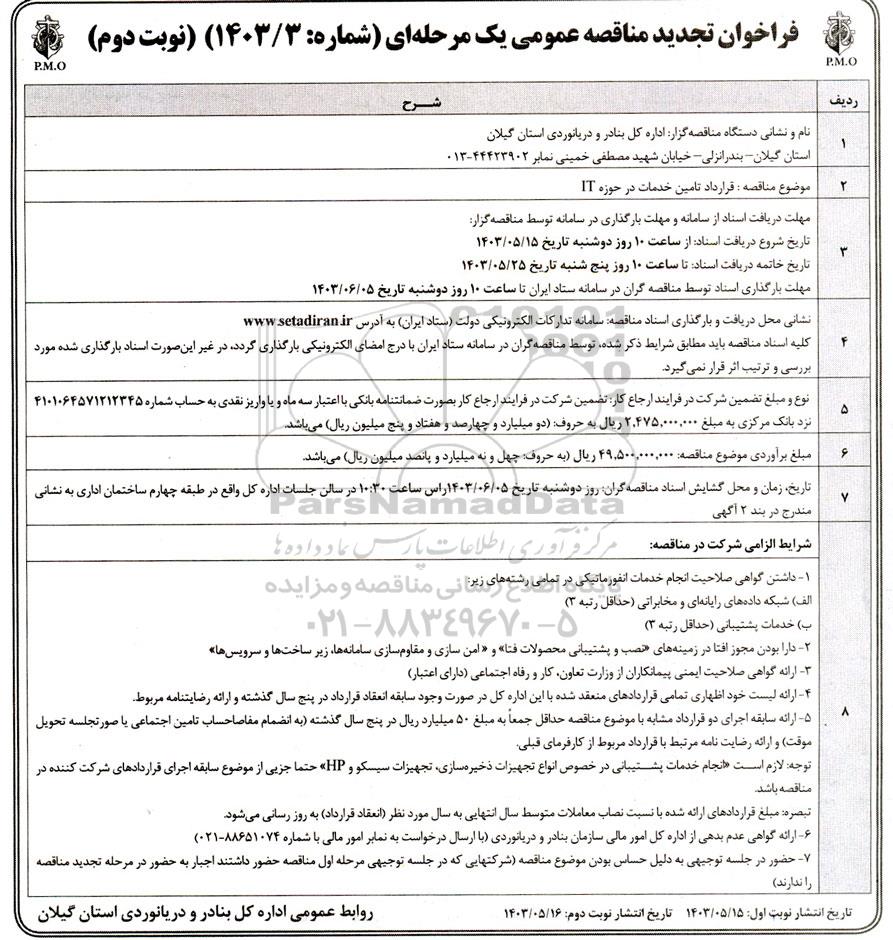 فراخوان تجدید مناقصه عمومی یک مرحله‌ای (شماره: ۱۴۰۳/۳) (نوبت دوم)
P.M.O
P.M.O
ردیف
شرح
۱
نام و نشانی دستگاه مناقصه‌گزار: اداره کل بنادر و دریانوردی استان گیلان
استان گیلان- بندرانزلی- خیابان شهید مصطفی خمینی نمابر ۴۴۴۲۳۹۰۲-۰۱۳
۲
موضوع مناقصه : قرارداد تامین خدمات در حوزه IT
۳
مهلت دریافت اسناد از سامانه و مهلت بارگذاری در سامانه توسط مناقصه‌گزار:
تاریخ شروع دریافت اسناد: از ساعت ۱۰ روز دوشنبه تاریخ ۱۴۰۳/۰۵/۱۵
تاریخ خاتمه دریافت اسناد: تا ساعت ۱۰ روز پنج شنبه تاریخ ۱۴۰۳/۰۵/۲۵
مهلت بارگذاری اسناد توسط مناقصه گران در سامانه ستاد ایران تا ساعت ۱۰ روز دوشنبه تاریخ ۱۴۰۳/۰۶/۰۵
۴
نشانی محل دریافت و بارگذاری اسناد مناقصه: سامانه تدارکات الکترونیکی دولت (ستاد ایران) به آدرس www.setadiran.ir
کلیه اسناد مناقصه باید مطابق شرایط ذکر شده، توسط مناقصه‌گران در سامانه ستاد ایران با درج امضای الکترونیکی بارگذاری گردد، در غیر این‌صورت اسناد بارگذاری شده مورد
بررسی و ترتیب اثر قرار نمی‌گیرد.
۵
نوع و مبلغ تضمین شرکت در فرایند ارجاع کار: تضمین شرکت در فرایند ارجاع کار بصورت ضمانتنامه بانکی با اعتبار سه ماه و یا واریز نقدی به حساب شماره ۴۱۰۱۰۶۴۵۷۱۲۱۲۳۴۵
نزد بانک مرکزی به مبلغ ۲,۴۷۵,۰۰۰,۰۰۰ ریال به حروف: (دو میلیارد و چهارصد و هفتاد و پنج میلیون ریال) می‌باشد.
۶
مبلغ برآوردی موضوع مناقصه: ۴۹,۵۰۰,۰۰۰,۰۰۰ ریال (به حروف: چهل و نه میلیارد و پانصد میلیون ریال) می‌باشد.
۷
تاریخ، زمان و محل گشایش اسناد مناقصه‌گران: روز دوشنبه تاریخ ۱۴۰۳/۰۶/۰۵راس ساعت ۱۰:۳۰ در سالن جلسات اداره کل واقع در طبقه چهارم ساختمان اداری به نشانی
مندرج در بند ۲ آگهی
شرایط الزامی شرکت در مناقصه:
۸
۱- داشتن گواهی صلاحیت انجام خدمات انفورماتیکی در تمامی رشته‌های زیر:
الف) شبکه داده‌های رایانه‌ای و مخابراتی (حداقل رتبه ۳)
ب) خدمات پشتیبانی (حداقل رتبه ۳)
۲- دارا بودن مجوز افتا در زمینه‌های «نصب و پشتیبانی محصولات فتا» و « امن سازی و مقاوم‌سازی سامانه‌ها، زیر ساخت‌ها و سرویس‌ها»
۳- ارائه گواهی صلاحیت ایمنی پیمانکاران از وزارت تعاون، کار و رفاه اجتماعی (دارای اعتبار)
۴- ارائه لیست خود اظهاری تمامی قراردادهای منعقد شده با این اداره کل در صورت وجود سابقه انعقاد قرارداد در پنج سال گذشته و ارائه رضایتنامه مربوط.
۵- ارائه سابقه اجرای دو قرارداد مشابه با موضوع مناقصه حداقل جمعاً به مبلغ ۵۰ میلیارد ریال در پنج سال گذشته (به انضمام مفاصاحساب تامین اجتماعی یا صورتجلسه تحویل
موقت) و ارائه رضایت نامه مرتبط با قرارداد مربوط از کارفرمای قبلی.
توجه: لازم است «انجام خدمات پشتیبانی در خصوص انواع تجهیزات ذخیره‌سازی، تجهیزات سیسکو و HP» حتما جزیی از موضوع سابقه اجرای قراردادهای شرکت کننده در
مناقصه باشد.
تبصره: مبلغ قراردادهای ارائه شده با نسبت نصاب معاملات متوسط سال انتهایی به سال مورد نظر (انعقاد قرارداد) به روز رسانی می‌شود.
۶- ارائه گواهی عدم بدهی از اداره کل امور مالی سازمان بنادر و دریانوردی (با ارسال درخواست به نمابر امور مالی با شماره ۸۸۶۵۱۰۷۴-۰۲۱)
۷- حضور در جلسه توجیهی به دلیل حساس بودن موضوع مناقصه (شرکتهایی که در جلسه توجیهی مرحله اول مناقصه حضور داشتند اجبار به حضور در مرحله تجدید مناقصه
را ندارند)
تاریخ انتشار نوبت اول: ۱۴۰۳/۰۵/۱۵ تاریخ انتشار نوبت دوم: ۱۴۰۳/۰۵/۱۶
روابط عمومی اداره کل بنادر و دریانوردی استان گیلان
ParsNamadData
مرکز فرآوری اطلاعات پارس نماد داده‌ها
پایگاه اطلاع رسانی مناقصه و مزایده
۰۲۱-۸۸۳۴۹۶۷۰-۵